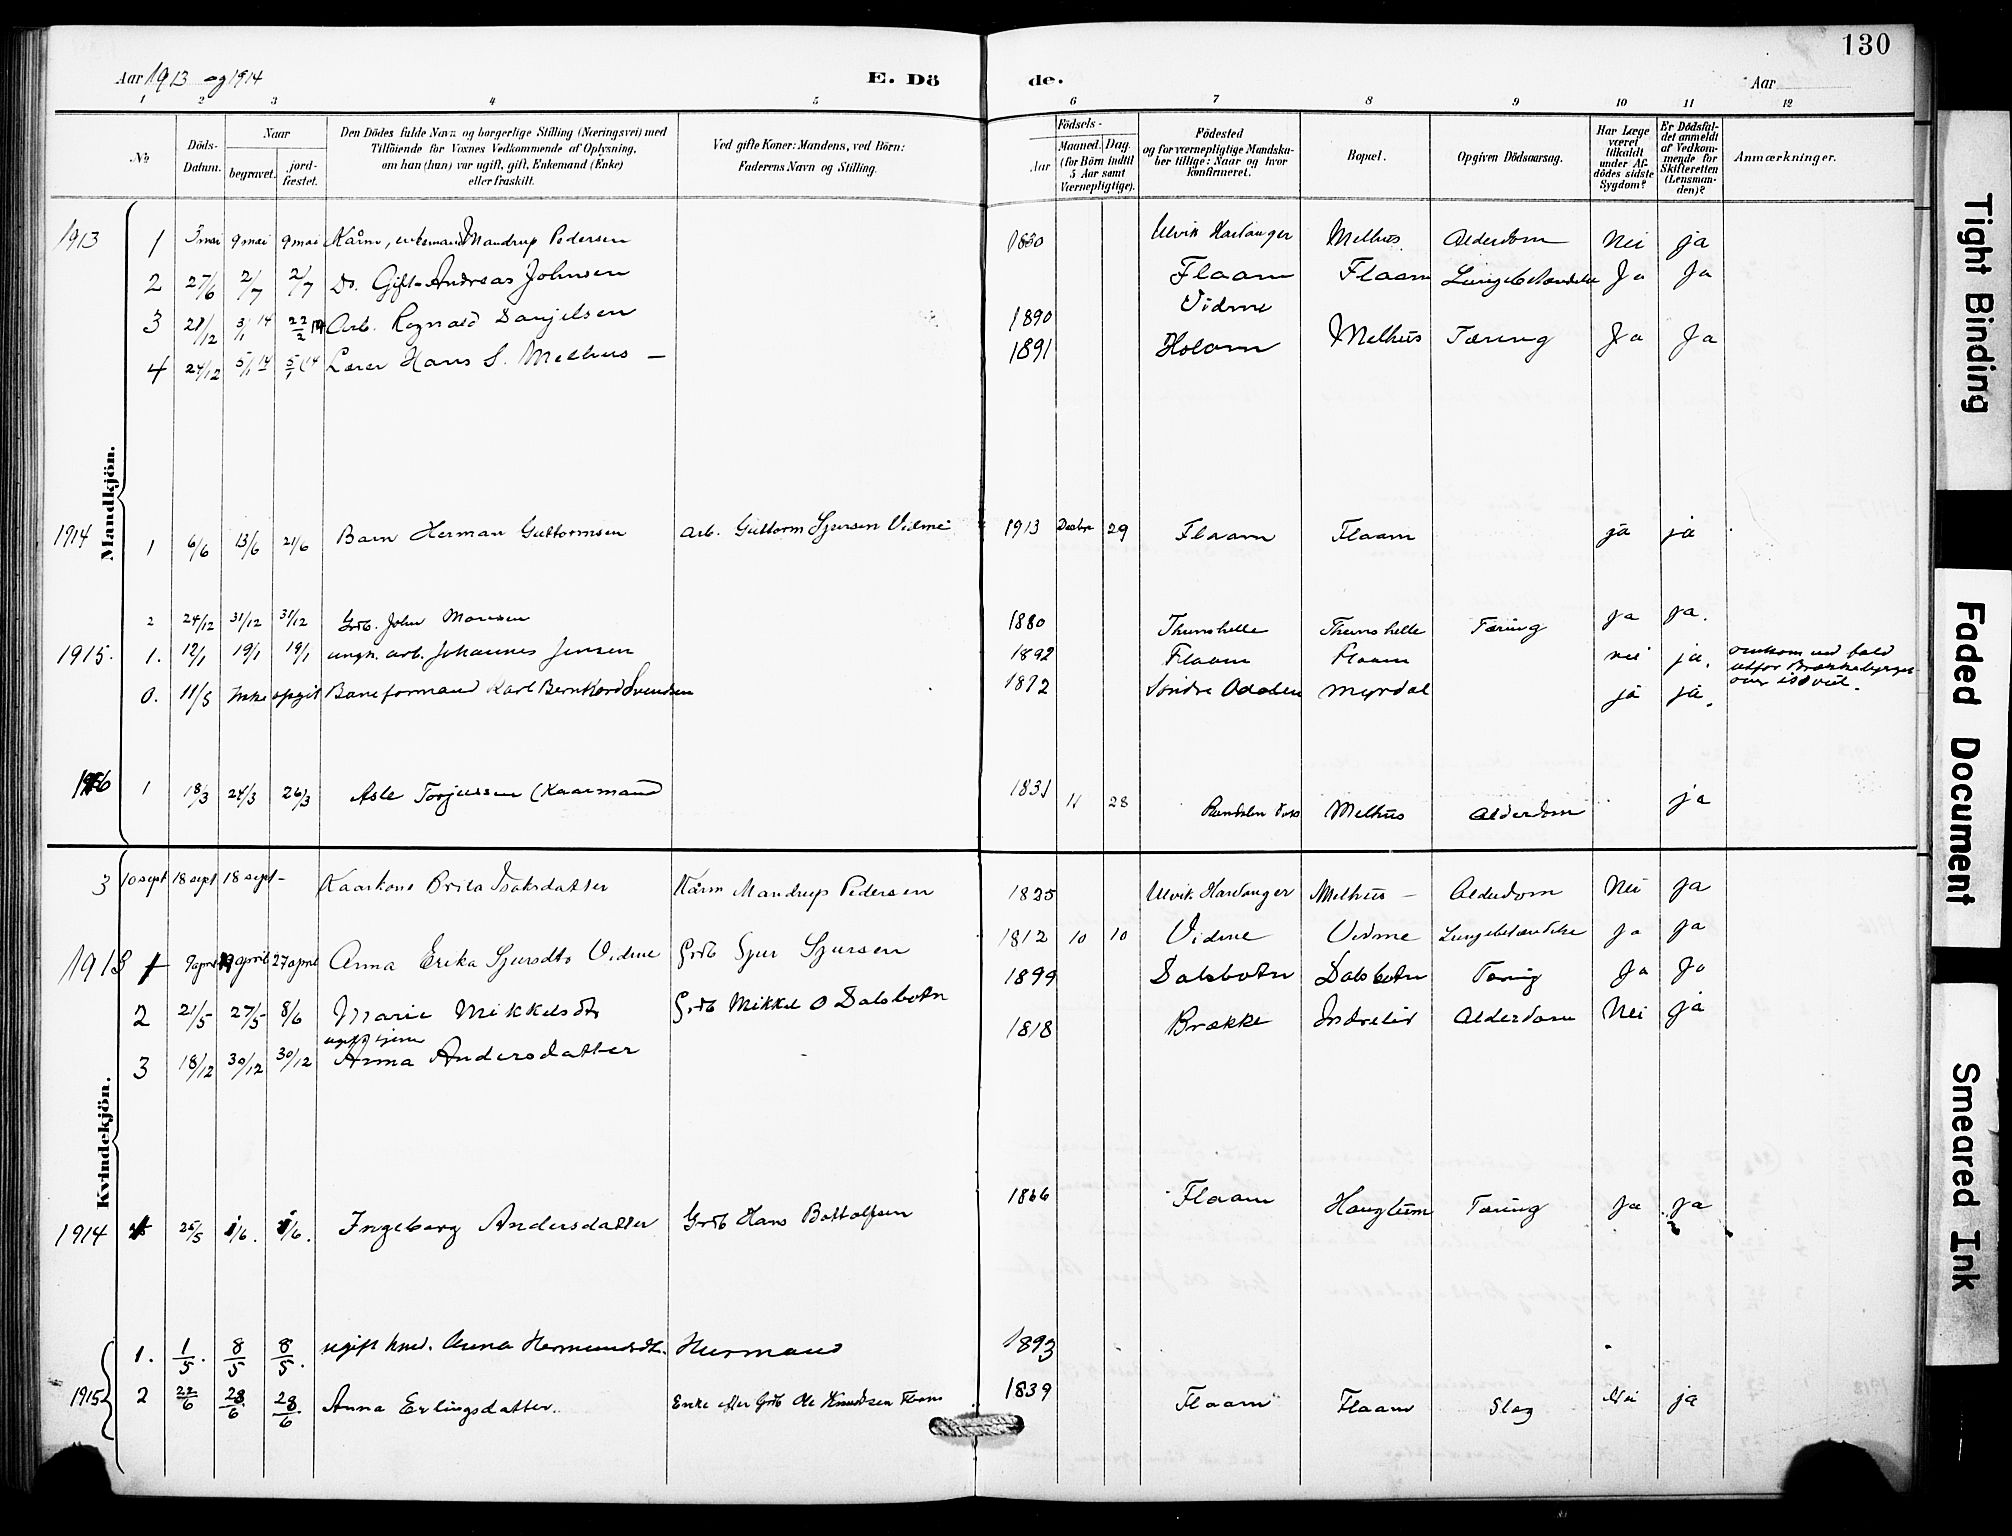 130
Aar 1913 og 1914
E. Dö de.
Aar
1 2 3 4 5 6 7 8 9 10 11 12
No
Döds-
Datum.
Naar
begravet. jord-
fæstet.
Den Dödes fulde Navn og borgerlige Stilling (Næringsvei) med
Tilföiende for Voxnes Vedkommende af Oplysning,
om han (hun) var ugift, gift, Enkemand (Enke)
eller fraskilt.
Ved gifte Koner: Mandens, ved Börn:
Faderens Navn og Stilling.
Födsels-
Aar Maaned. Dag.
(for Börn indtil
5 Aar samt
Værnepligtige).
Födested
og for værnepligtige Mandska-
ber tillige: Naar og hvor
konfirmeret.
Bopæl.
Opgiven Dödsaarsag.
Har Læge
været
tilkaldt
under Af-
dødes sidste
Sygdom?
Er Dödsfal-
det anmeldt
af Vedkom-
mende for
Skifteretten
(Lensman-
den)?
Anmærkninger.
Mandkjön.
1913 1 3 mai 9 mai 9 mai Kårm, enkemand Mandrup Pedersen 1830 Ulvik Hardanger Melhus Alderdom Nei ja
2 27/6 2/7 2/7 Do. Gift Andreas Johnsen Flaam Flaam Lungebetændelse Ja Ja
3 28/12 3/1 14 22/2 14 Arb. Ragnald Danjelsen 1890 Vidme
4 24/12 5/1 14 5/1 14 Lærer Hans S. Melhus — 1891 Holom Melhus Tæring Ja Ja
1914 1 6/6 13/6 21/6 Barn Herman Guttormsen Arb. Guttorm Sjursen Vidme 1913 Decbr 29 Flaam Flaam ja ja
2 24/12 31/12 31/12 Grdb. John Monsen 1880 Thunshelle Thunshelle Tæring ja ja.
1915. 1. 12/1 19/1 19/1 ungk. arb. Johannes Jensen 1892 Flaam Flaam nei ja. omkom ved fald
utfor Brækkebjerget
0. 11/5 Ikke opgit Baneformand Karl Bernhard Svendsen 1872 Söndre Odalen Myrdal ja ja.
1916 1 18/3 24/3 26/3 Asle Torjussen (Kaarmand 1831 11 28 Rundalen Voss Melhus Alderdom ja
Kvindekjön.
3 10 sept 18 sept 18 sept - Kaarkone Brita Isaksdatter Kårm Mandrup Pedersen 1825 Ulvik Hardanger Melhus — Alderdom Nei ja
1913 1 9 april 19 april 27 april Anna Erika Sjursdtr Vidme Grdb Sjur Sjursen 1812 10 10 Vidme Vidme Lungebetændelse ja ja
2 21/5 27/5 8/6 Marie Mikkelsdtr Grdb Mikkel O Dalsbotn 1899 Dalsbotn Dalsbotn Tæring Ja Ja
ugift tjene
3 18/12 30/12 30/12 Anna Andersdatter 1818 Brække Indrelid Alderdom Nei ja
1914 25/5 1/6. 1/6. Ingeborg Andersdatter Grdb Hans Bottolfsen 1866 Flaam Haugtun Tæring Ja ja
1. 1/5. 8/5 8/5. ugift hmd. Anna Hermundsdtr. Hermand 1893
1915 2 22/6 28/6 28/6 Anna Erlingsdatter. Enke efter Grdb Ole Knudsen Flaam 1839 Flaam Flaam Slag Nei ja
Tight Binding
Faded Document
Smeared Ink